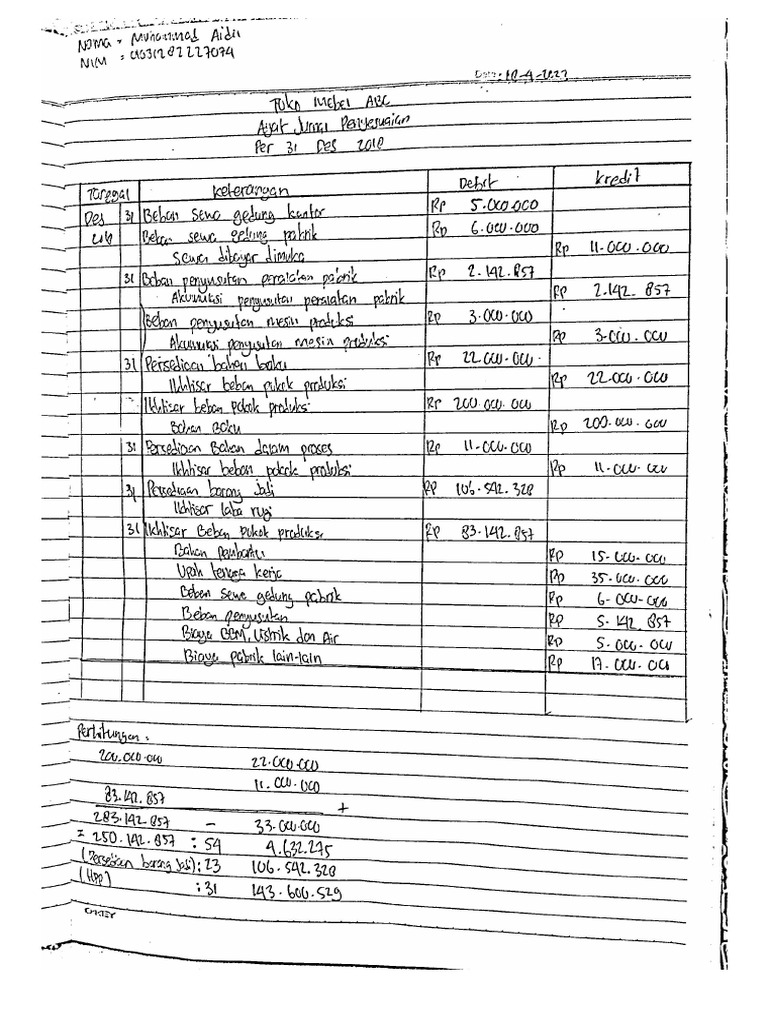 Nama = Muhammad Aidil
NIM : 01031282227074
Date: 10-4-2023
Toko Mebel ABC
Ayat Jurnal Penyesuaian
Per 31 Des 2018
Tanggal Keterangan Debit Kredit
Des 31 Beban sewa gedung kantor Rp 5.000.000
Beban sewa gedung pabrik Rp 6.000.000
Sewa dibayar dimuka Rp 11.000.000
31 Beban penyusutan peralatan pabrik Rp 2.142.857
Akumulasi penyusutan peralatan pabrik Rp 2.142.857
Beban penyusutan mesin produksi Rp 3.000.000
Akumulasi penyusutan mesin produksi Rp 3.000.000
31 Persediaan bahan baku Rp 22.000.000
Ikhtisar beban pokok produksi Rp 22.000.000
Ikhtisar beban pokok produksi Rp 200.000.000
Bahan Baku Rp 200.000.000
31 Persediaan Bahan dalam proses Rp 11.000.000
Ikhtisar beban pokok produksi Rp 11.000.000
31 Persediaan barang jadi Rp 106.542.328
Ikhtisar laba rugi
31 Ikhtisar Beban pokok produksi Rp 83.142.857
Bahan Pembantu Rp 15.000.000
Upah tenaga kerja Rp 35.000.000
Beban sewa gedung pabrik Rp 6.000.000
Beban penyusutan Rp 5.142.857
Biaya BBM, Listrik dan Air Rp 5.000.000
Biaya pabrik lain-lain Rp 17.000.000
Perhitungan :
200.000.000 22.000.000
11.000.000
83.142.857 +
283.142.857 - 33.000.000
= 250.142.857 : 54 4.632.275
(Persediaan barang Jadi) : 23 106.542.328
(HPP) : 31 143.600.529